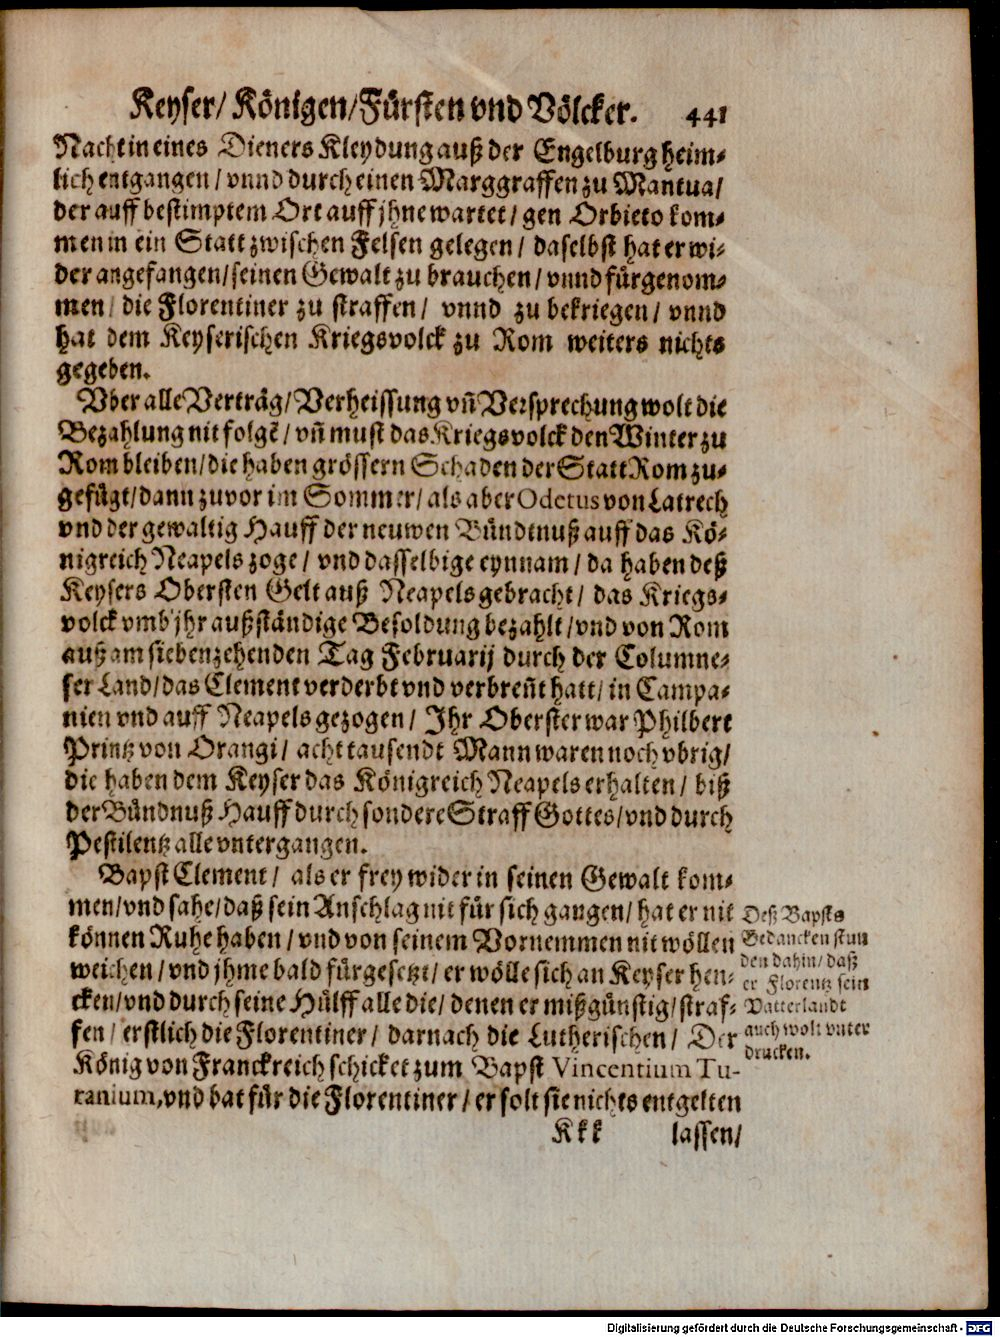 Keyser/ Königen/Fürsten vnd Völcker. 441
Nacht in eines Dieners Kleydung auß der Engelburg heim-
lich entgangen/ vnnd durch einen Marggraffen zu Mantua/
der auff bestimptem Ort auff jhne wartet/ gen Orbieto kom-
men in ein Statt zwischen Felsen gelegen/ daselbst hat er wi-
der angefangen/ seinen Gewalt zu brauchen/ vnnd fürgenom-
men/ die Florentiner zu straffen/ vnnd zu bekriegen/ vnnd
hat dem Keyserischen Kriegsvolck zu Rom weiters nichts
gegeben.
Vber alle Verträg/ Verheissung vñ Versprechung wolt die
Bezahlung nit folgẽ/ vñ must das Kriegsvolck den Winter zu
Rom bleiben/ die haben grössern Schaden der Statt Rom zu-
gefügt/ dann zuvor im Sommer/ als aber Odetus von Latrech
vnd der gewaltig Hauff der neuwen Bündtnuß auff das Kö-
nigreich Neapels zoge/ vnd dasselbige eynnam/ da haben deß
Keysers Obersten Gelt auß Neapels gebracht/ das Kriegs-
volck vmb jhr außständige Besoldung bezahlt/ vnd von Rom
auß am siebenzehenden Tag Februarij durch der Columne-
ser Land/ das Clement verderbt vnd verbreñt hatt/ in Campa-
nien vnd auff Neapels gezogen/ Ihr Oberster war Philbert
Printz von Orangi/ acht tausendt Mann waren noch vbrig/
die haben dem Keyser das Königreich Neapels erhalten/ biß
der Bündnuß Hauff durch sondere Straff Gottes/ vnd durch
Pestilentz alle vntergangen.
Bapst Clement/ als er frey wider in seinen Gewalt kom-
men/ vnd sahe/ daß sein Anschlag nit für sich gangen/ hat er nit
können Ruhe haben/ vnd von seinem Vornemmen nit wöllen
weichen/ vnd jhme bald fürgesetzt/ er wölle sich an Keyser hen-
cken/ vnd durch seine Hülff alle die/ denen er mißgünstig/ straf-
fen/ erstlich die Florentiner/ darnach die Lutherischen/ Der
König von Franckreich schicket zum Bapst Vincentium Tu-
ranium, vnd bat für die Florentiner/ er solt sie nichts entgelten
Deß Bapsts
Gedancken stun
den dahin/ daß
er Florentz sein
Vatterlandt
auch wolt vnter
drucken.
Kkk lassen/
Digitalisierung gefördert durch die Deutsche Forschungsgemeinschaft - DFG